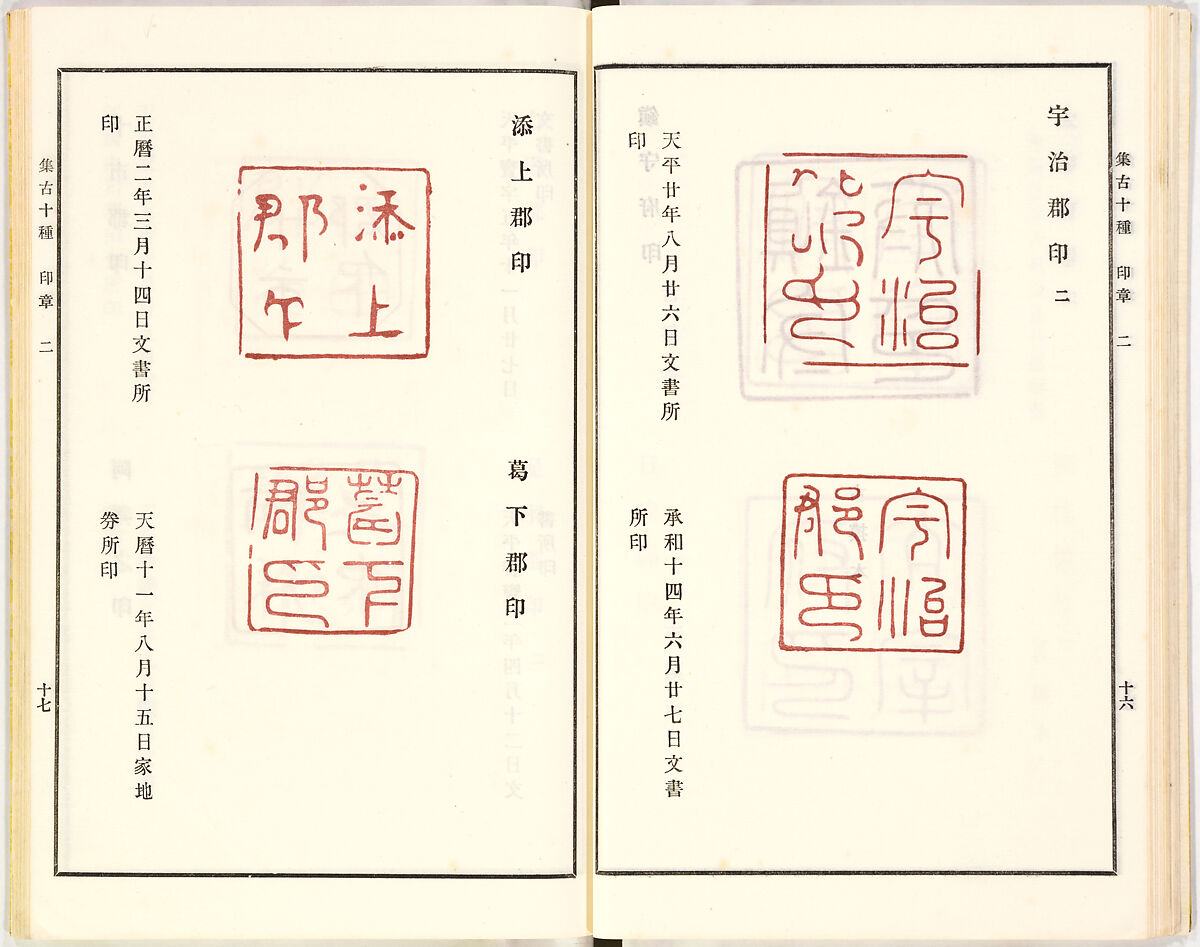 集古十種 印章 二
十六
宇治郡印 二
宇治郡印
天平廿年八月廿六日文書所
印
宇治郡印
承和十四年六月廿七日文書
所印
添上郡印
添上郡印
正曆二年三月十四日文書所
印
葛下郡印
葛下郡印
天曆十一年八月十五日家地
券所印
集古十種 印章 二
十七